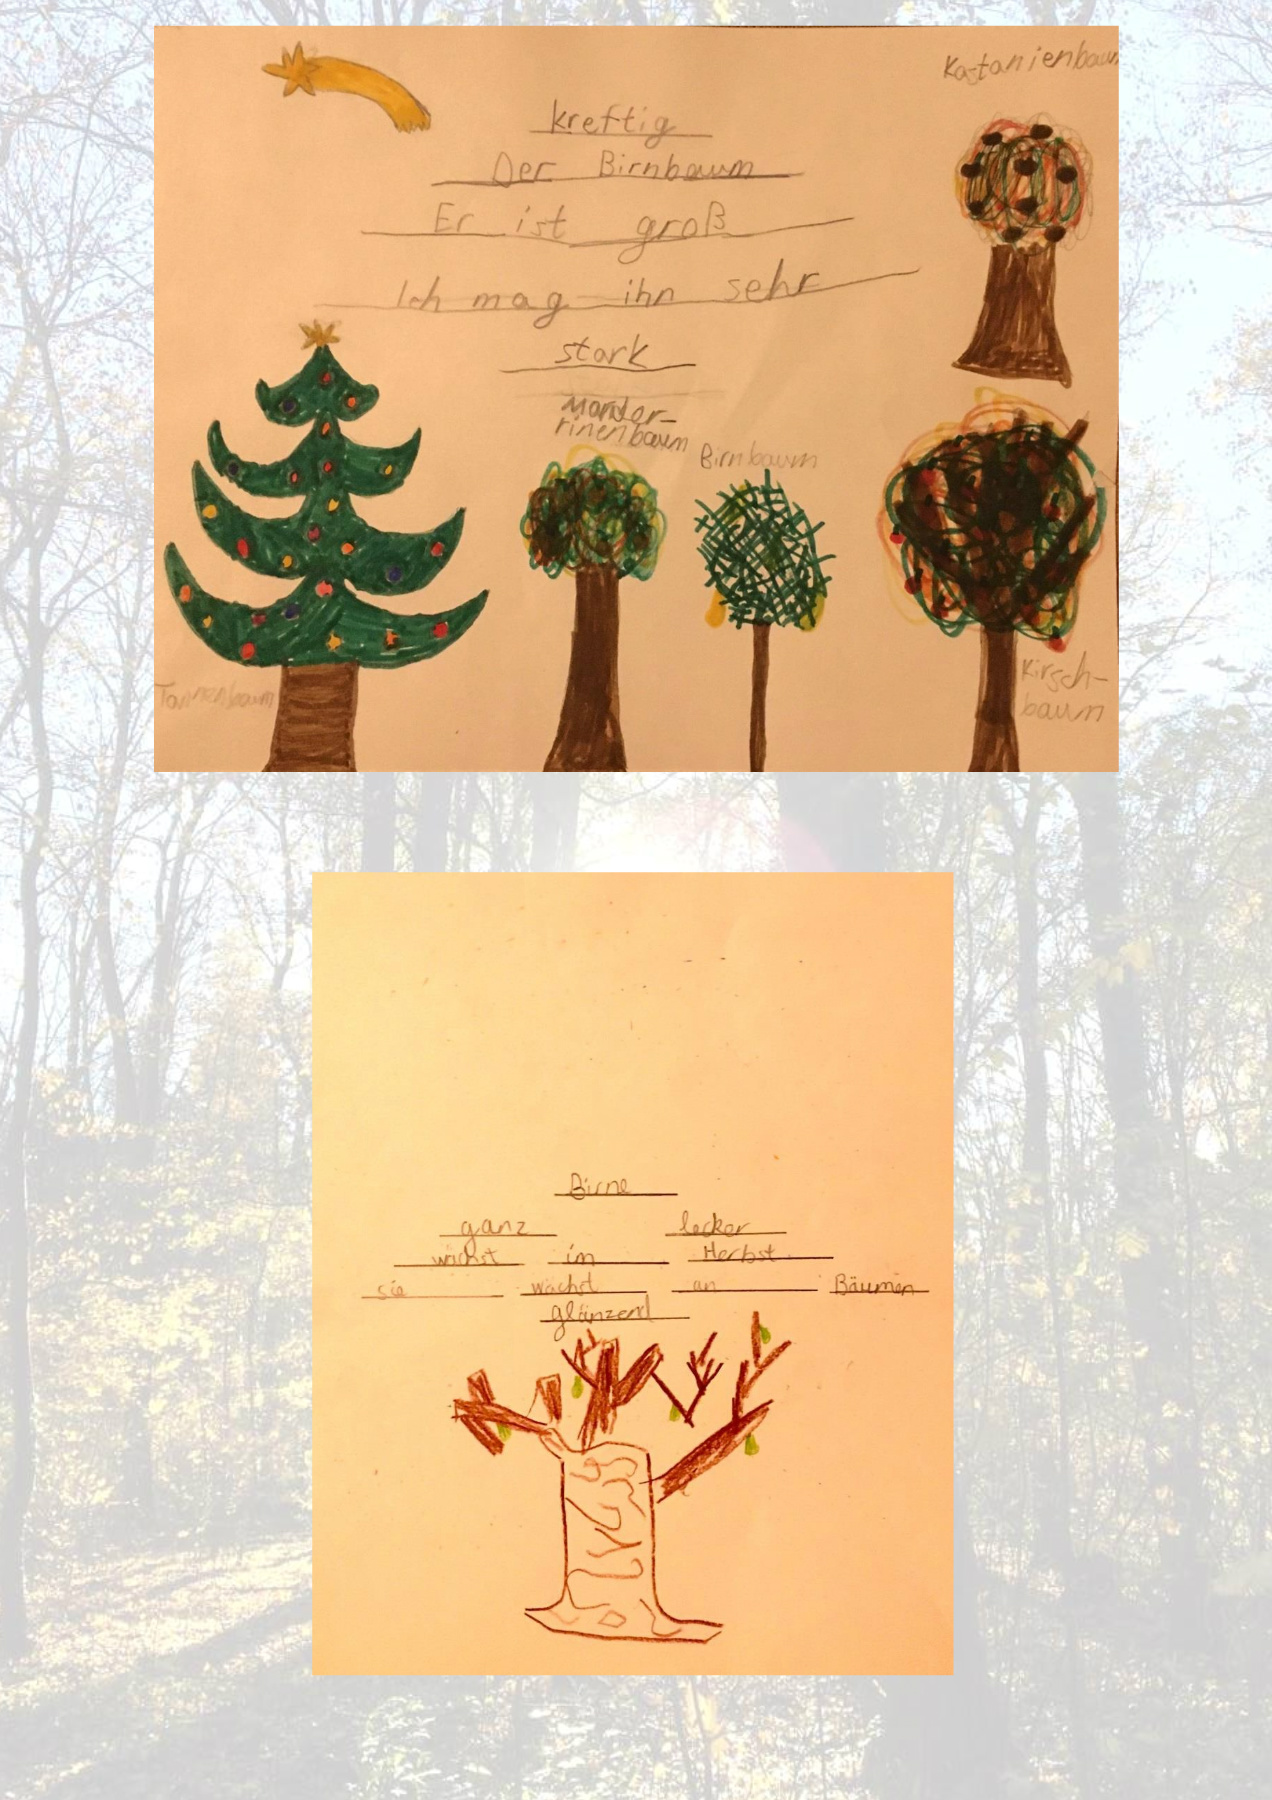 Kastanienbaum
kreftig
Der Birnbaum
Er ist groß
Ich mag ihn sehr
stark
Mandar-
rinenbaum
Birnbaum
Tannenbaum
Kirsch-
baum
Birne
ganz lecker
wächst im Herbst
sie wächst an Bäumen
glänzend